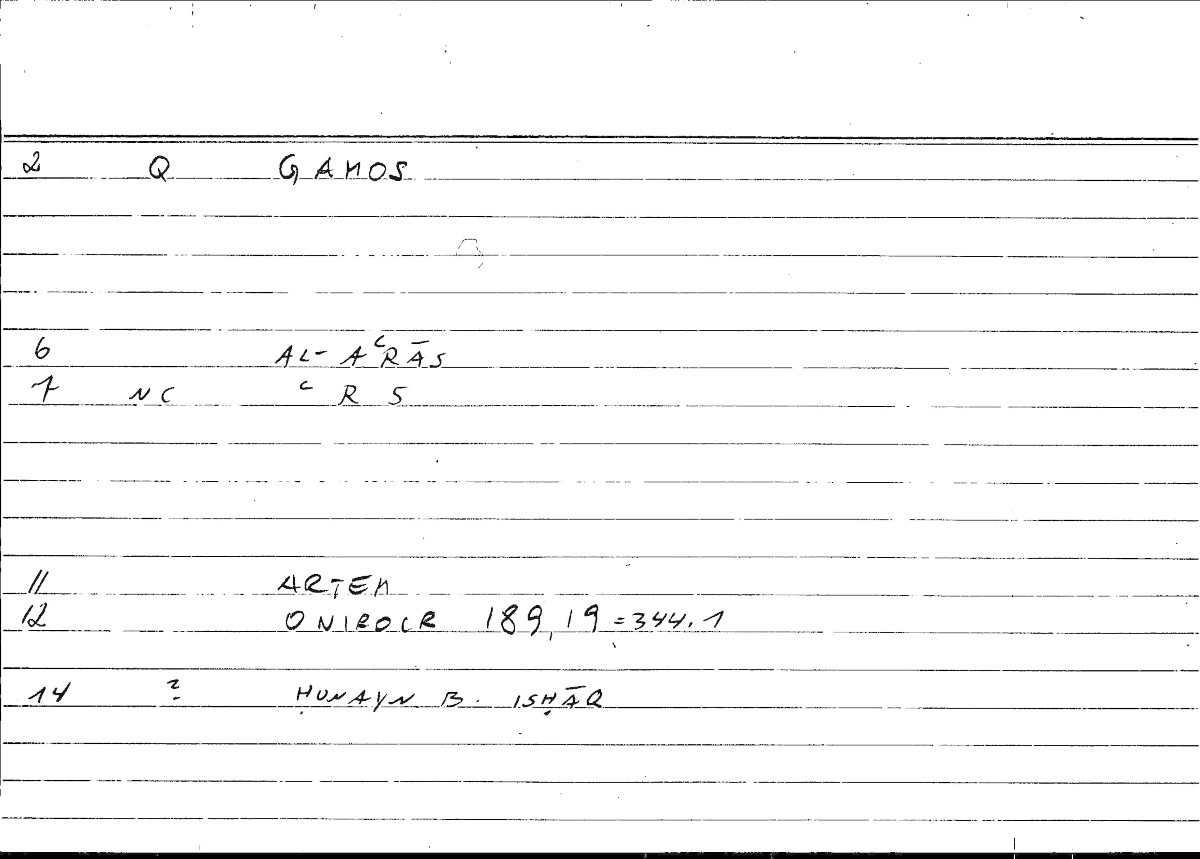 2 Q GAMOS
6 AL- AʿRĀS
7 NC ʿ R S
11 ARTEM
12 ONIROCR 189,19 = 344.1
14 ? ḤUNAYN B. ISḤĀQ